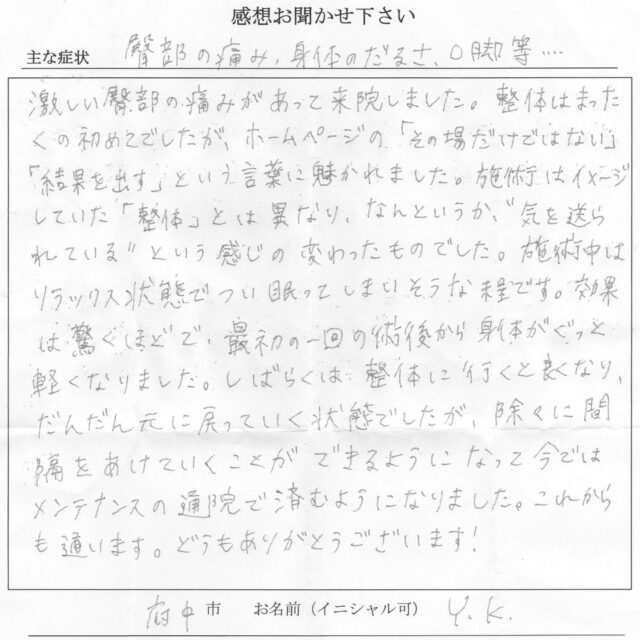 感想お聞かせ下さい
主な症状 臀部の痛み、身体のだるさ、O脚等....
激しい臀部の痛みがあって来院しました。整体はまった
くの初めてでしたが、ホームページの「その場だけではない」
「結果を出す」という言葉に魅かれました。施術はイメージ
していた「整体」とは異なり、なんというか、"気を送ら
れている"という感じの変わったものでした。施術中は
リラックス状態でつい眠ってしまいそうな程です。効果
は驚くほどで、最初の一回の術後から身体がぐっと
軽くなりました。しばらくは整体に行くと良くなり、
だんだん元に戻っていく状態でしたが、除々に間
隔をあけていくことができるようになって今では
メンテナンスの通院で済むようになりました。これから
も通います。どうもありがとうございます!
府中市 お名前(イニシャル可) Y.K.